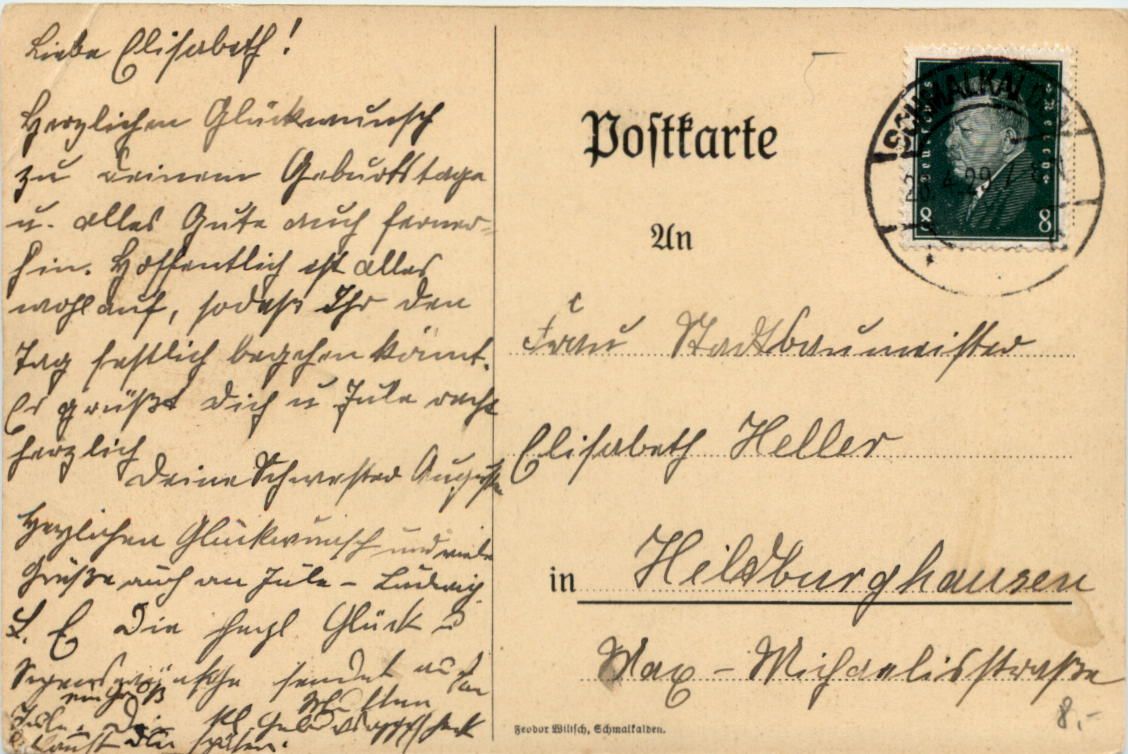 Liebe Elisabeth!
Herzlichen Glückwunsch
zu deinem Geburtstage
u. alles Gute auch ferner-
hin. Hoffentlich ist alles
wohlauf, sodaß Ihr den
Tag festlich begehen könnt.
Es grüßt Dich u Jule recht
herzlich
Deine Schwester Auguste
Herzlichen Glückwunsch und viele
Grüße auch an Jule – Ludwig.
L. E. Die Glück
sendet
Jule. Die kl.
später.
Postkarte
An
Frau Stadtbaumeister
Elisabeth Heller
in Hildburghausen
Max-Michaelisstraße
Feodor Wilisch, Schmalkalden.
8.-
SCHMALKALDEN
4.29.
Deutsches Reich
8 8